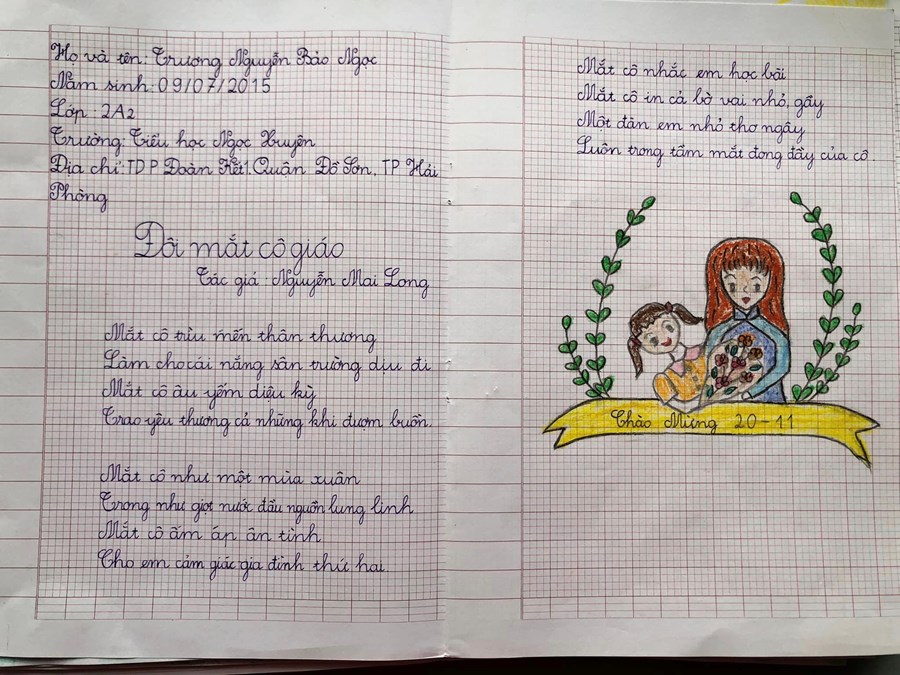 Họ và tên: Trương Nguyễn Bảo Ngọc
Năm sinh: 09/07/2015
Lớp: 2A2
Trường: Tiểu học Ngọc Xuyên
Địa chỉ: TDP Đoàn Kết 1. Quận Đồ Sơn, TP Hải
Phòng
Đôi mắt cô giáo
Tác giả: Nguyễn Mai Long
Mắt cô trìu mến thân thương
Làm cho cái nắng sân trường dịu đi
Mắt cô âu yếm diệu kỳ
Trao yêu thương cả những khi đượm buồn.
Mắt cô như một mùa xuân
Trong như giọt nước đầu nguồn lung linh
Mắt cô ấm áp ân tình
Cho em cảm giác gia đình thứ hai
Mắt cô nhắc em học bài
Mắt cô in cả bờ vai nhỏ, gầy
Một đàn em nhỏ thơ ngây
Luôn trong tầm mắt đong đầy của cô.
Chào Mừng 20-11